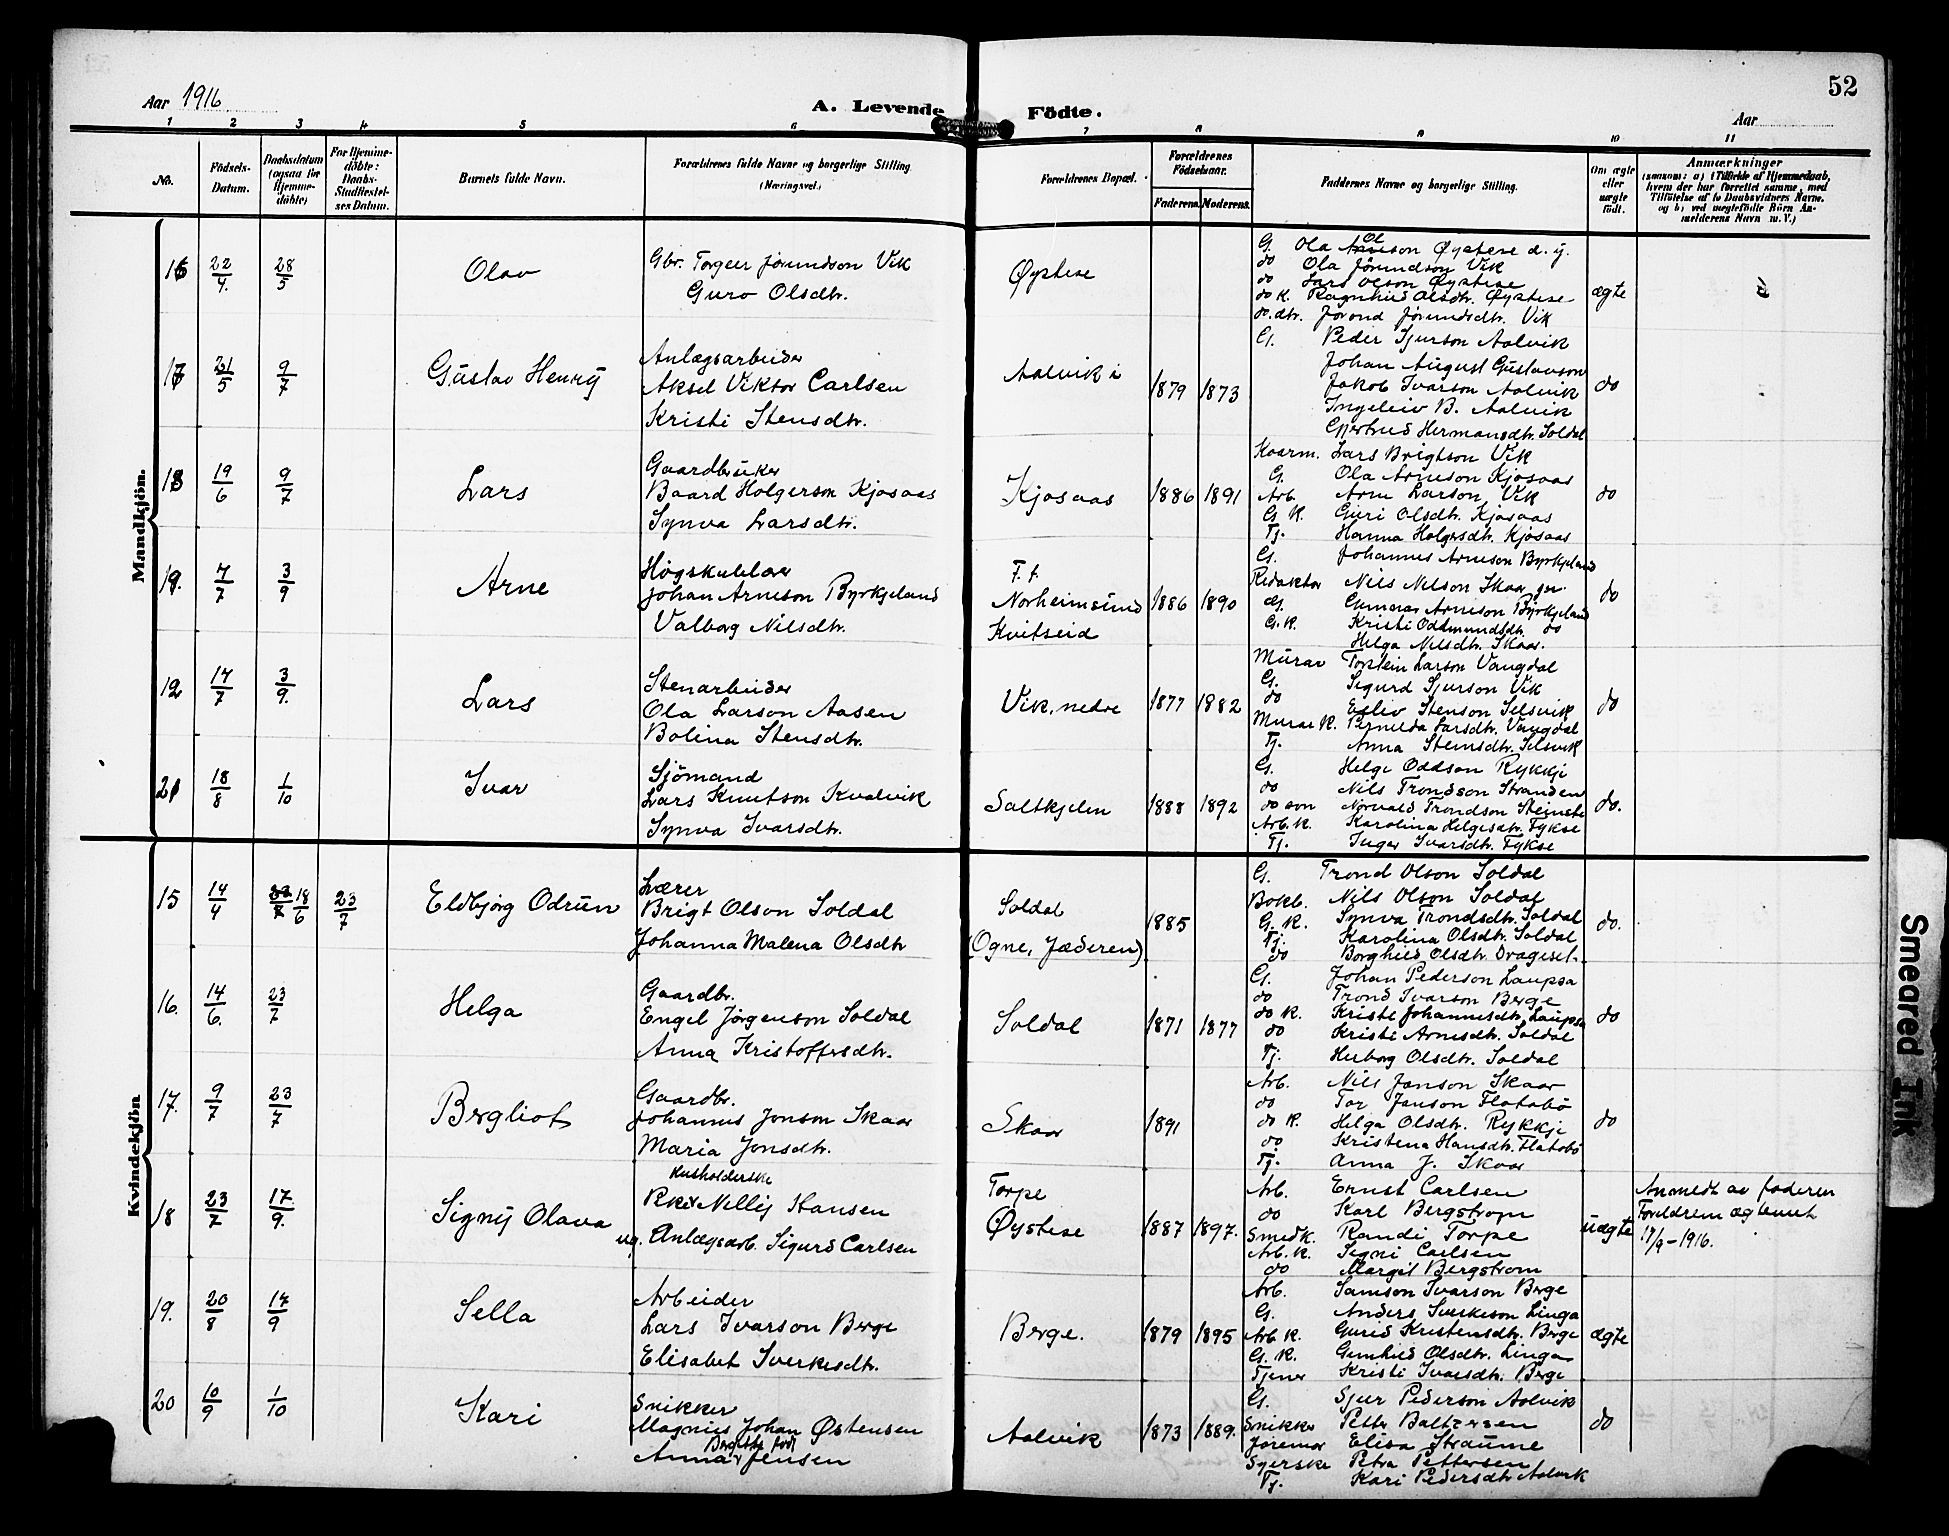 52
Aar 1916
A. Levende Födte.
Aar
1 2 3 4 5 6 7 8 9 10 11
No.
Födsels-Datum.
Daabsdatum (ogsaa for Hjemme-döbte)
For Hjemme-döbte: Daabs-Stadfæstel-ses Datum.
Barnets fulde Navn.
Forældrenes fulde Navne og borgerlige Stilling (Næringsvei.)
Forældrenes Bopæl.
Forældrenes Födselsaar.
Faderens. Moderens.
Faddernes Navne og borgerlige Stilling.
Om ægte eller uægte födt.
Anmærkninger
(saasom: a) i Tilfælde af Hjemmedaab, hvem der har forrettet samme, med Tilföielse af to Daabsvidners Navne. og b) ved uægtefödte Börn An-melderens Navn m. V.)
Mandkjön.
16 22/4. 28/5 Olav
Gbr. Torgeir Jórundson Vik
Guro Olsdtr.
Øystese
G. Ola Olson Øystese d. y.
do Ola Jórundson Vik
do Lars Olson Øystese
do K. Ragnhild Olsdtr. Øystese
do. dtr. Jorond Jórundsdtr. Vik
ægte
17 21/5 9/7 Gustav Henry
Anlægsarbeider
Aksel Viktor Carlsen
Kristi Stensdtr.
Aalvik i
1879 1873
G. Peder Sjurson Aalvik
Johan August Gustavson
Jakob Ivarson Aalvik
Ingeleiv B. Aalvik
Gjertrud Hermansdtr. Soldal
do
18 19/6 9/7 Lars
Gaardbruker
Baard Holgerson Kjosaas
Synva Larsdtr.
Kjosaas
1886 1891
Lars Brigtson Vik
G. Ola Arneson Kjosaas
Arb. Arne Larson Vik
G. K. Guri Olsdtr. Kjosaas
Tj. Hanna Holgersdtr. Kjosaas
do
19. 7/7 3/9 Arne
Høgskulelærer
Johan Arneson Byrkjeland
Valborg Nilsdtr.
F. f.
Norheimsund
Kvitseid
1886 1890
G. Johannes Arneson Byrkjeland
Redaktør Nils Nilson Skaar jr.
G. Gunnar Arneson Byrkjeland
G. K. Kristi Oddmundsdtr. do
Helga Nilsdtr. Skaar.
do
17/7 3/9. Lars
Stenarbeider
Ola Larson Aasen
Bolina Stensdtr.
Vik, nedre
1877 1882
Murar Torstein Larson Vangdal
G. Sigurd Sjurson Vik
do Eiliv Stenson Selsvik
Murar K. Pernilda Larsdtr. Vangdal
Tj. Anna Steinsdtr. Selsvik
do
21 18/8 1/10 Ivar
Sjömand
Lars Knutson Kvalvik
Synva Ivarsdtr.
Saltkjelen
1888 1892
G. Helge Oddson Rykkje
do Nils Trondson Stranden
do son Norvald Trondson Steinstø
Arb. K. Karolina Helgesdtr. Fykse
Tj. Inger Ivarsdtr. Fykse
do.
Kvindekjön
15 14/4 18/6 23/7 Eldbjørg Odrun
Lærer
Brigt Olson Soldal
Johanna Malena Olsdtr
Soldal
(Ogne, Jæderen)
1885
G. Trond Olson Soldal
Bokb. Nils Olson Soldal
G. K. Synva Trondsdtr. Soldal
Tj. Karolina Olsdtr. Soldal
do Borghild Olsdtr. Drageset.
do.
16. 14/6. 23/7 Helga
Gaardbr.
Engel Jörgenson Soldal
Anna Kristoffersdtr.
Soldal
1871 1877
G. Johan Pederson Laupsa
do Trond Ivarson Berge
do K. Kristi Johannesdtr. Laupsa
do Kristi Arnesdtr. Soldal
Tj. Herborg Olsdtr. Soldal
do
17. 9/7 23/7 Bergliot
Gaardbr.
Johannes Jonson Skaar
Maria Jonsdtr.
Skaar
1891
Arb. Nils Janson Skaar
do Tor Janson Flotabø
do K. Helga Olsdtr. Rykkje
do Kristena Hansdtr. Flatabø
Tj. Anna J. Skaar
do
18 23/7 17/9. Signy Olava
Husholderske
Nelly Hansen
ug. Anlægsarb. Sigurd Carlsen
Torpe
Øystese
1887 1897.
Arb. Ernst Carlsen
do Karl Bergstrøm
Smedk. Randi Torpe
Arb. K. Signi Carlsen
do Margit Bergstrøm
uægte
Anmeldt av faderen
Foreldrene ægteviet
17/9-1916.
19. 20/8 17/9 Sella
Arbeider
Lars Ivarson Berge
Elisabet Sverkesdtr.
Berge.
1879 1895
Arb. Samson Ivarson Berge
G. Anders Sverkeson Linga
Arb K. Gurid Kristensdtr. Berge
G. K. Gunhild Olsdtr. Linga
Tjener Kristi Ivarsdtr. Berge
ægte
20 10/9 1/10 Kari
Snikker
Magnus Johan Østensen
Anna Bergitte født Jensen
Aalvik
1873 1889.
G. Sjur Pederson Aalvik
Snikker Petter Baltzersen
Jordmor Elisa Straume
Syerske Petra Pettersen
Tj. Kari Pedersdtr Aalvik
do
Smeared Ink